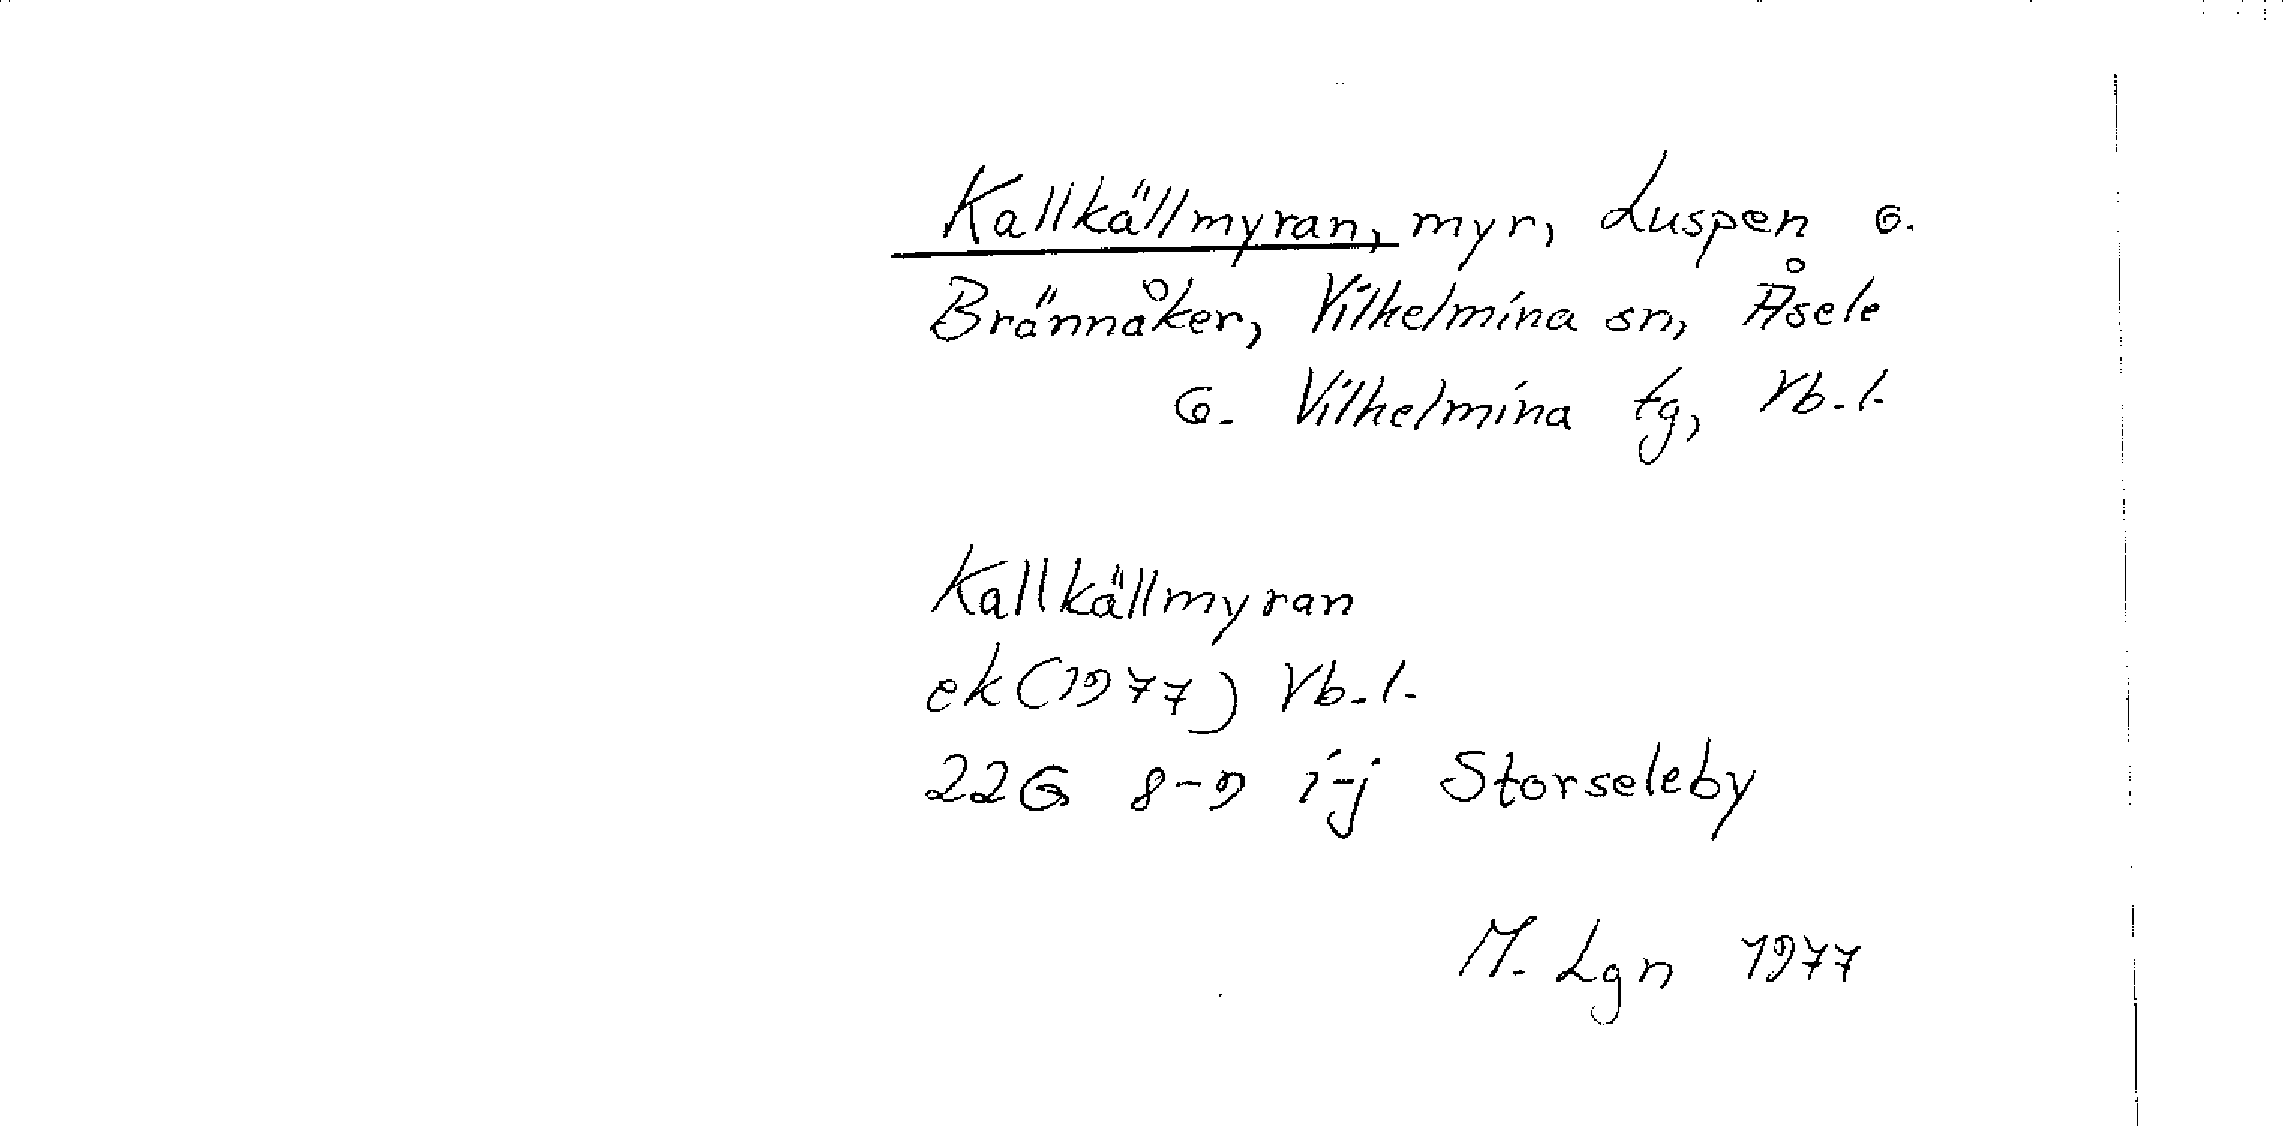 Kallkällmyran, myr, Luspen o.
Brännåker, Vilhelmina sn, Åsele
o. Vilhelmina tg, Vb.l.
Kallkällmyran
ek (1977) Vb.l.
22G 8-9 i-j Storseleby
M. Lgn 1977